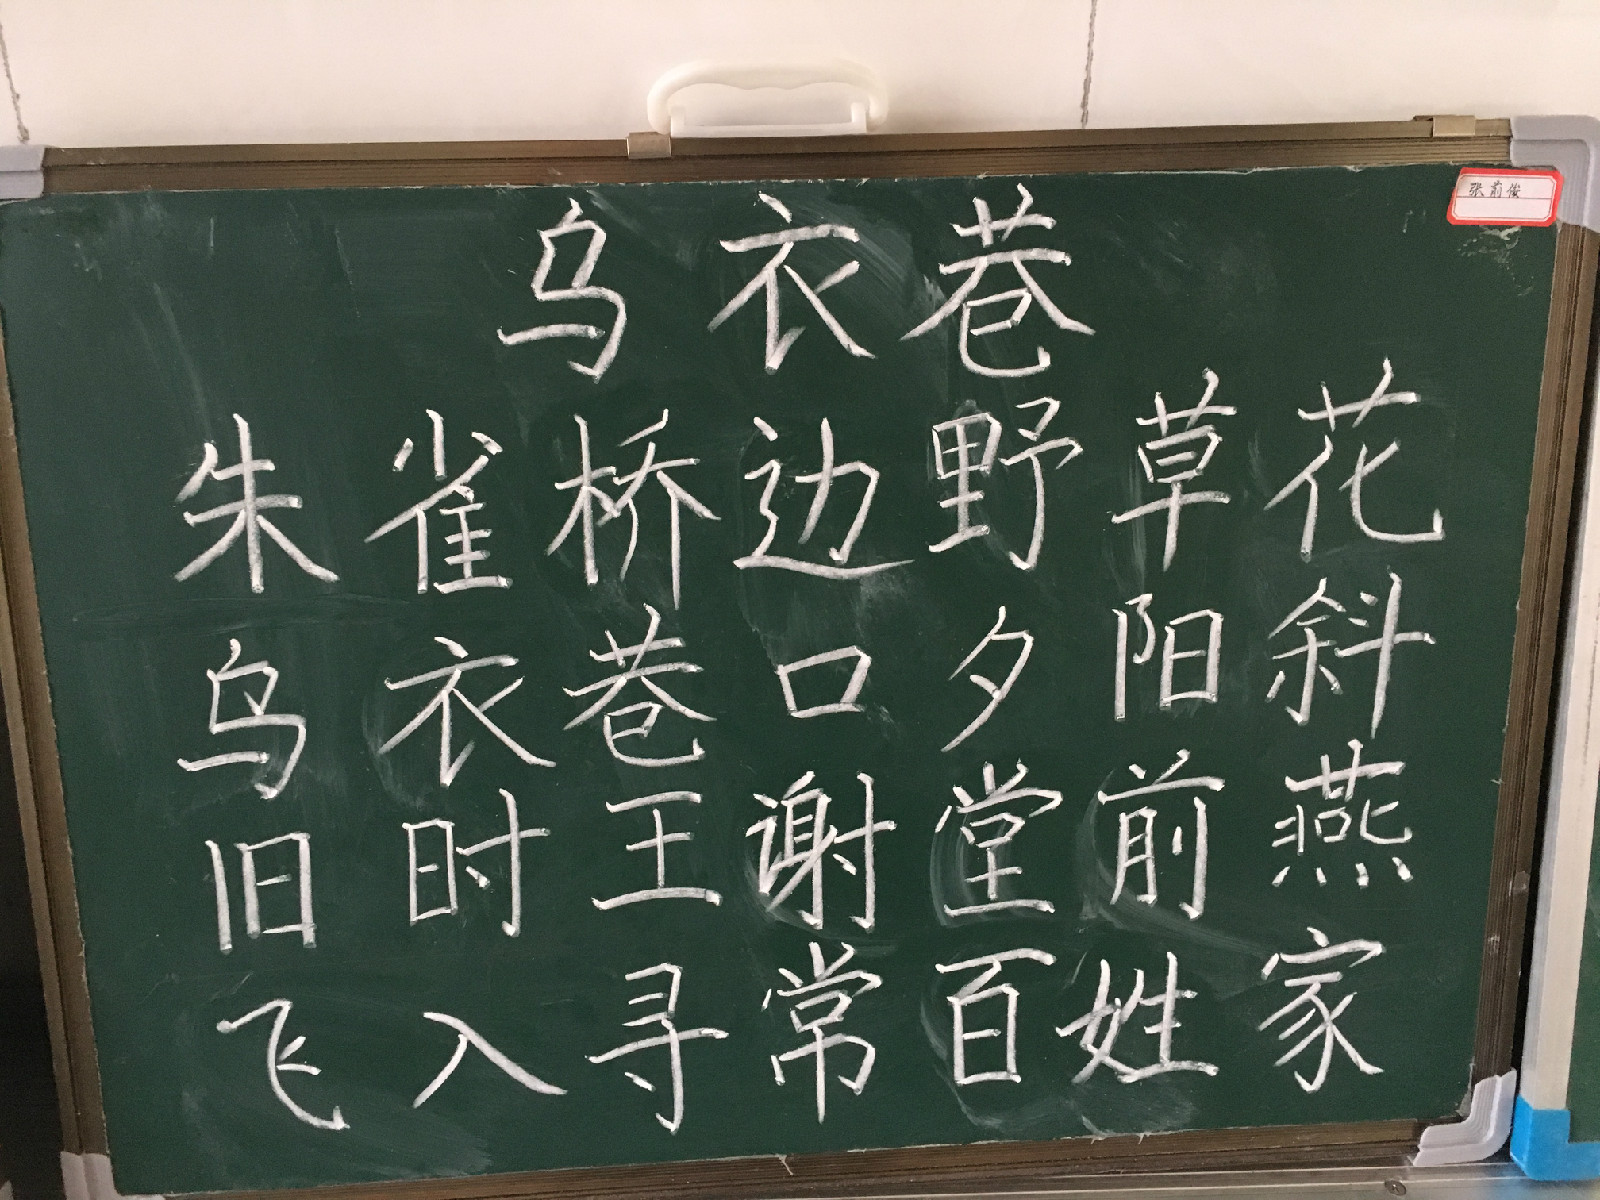 乌衣巷
朱雀桥边野草花
乌衣巷口夕阳斜
旧时王谢堂前燕
飞入寻常百姓家
张前俊